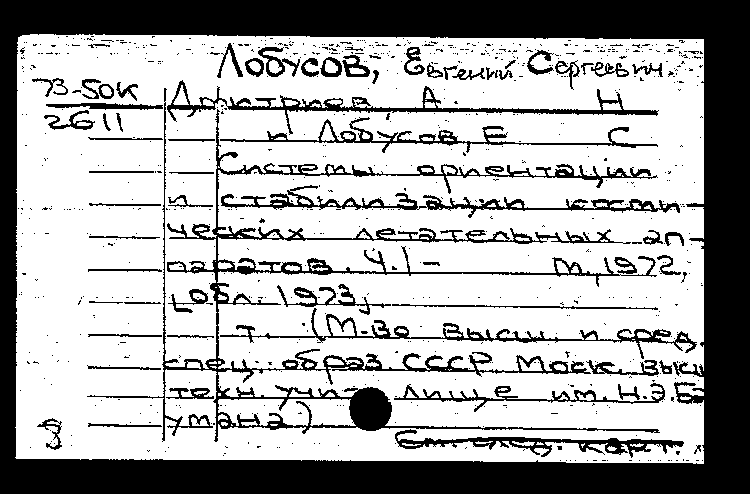 Лобусов, Евгений Сергеевич.
73-50К Дмитриев, А. Н
2611 и Лобусов, Е С
Системы ориентации
и стабилизации косми-
ческих летательных ап-
паратов. Ч.1 - М., 1972,
[обл. 1973].
т. (М-во высш. и сред.
спец. образ. СССР Моск. высш
техн. училище им. Н.Э.Ба
умана)
См. след. карт.